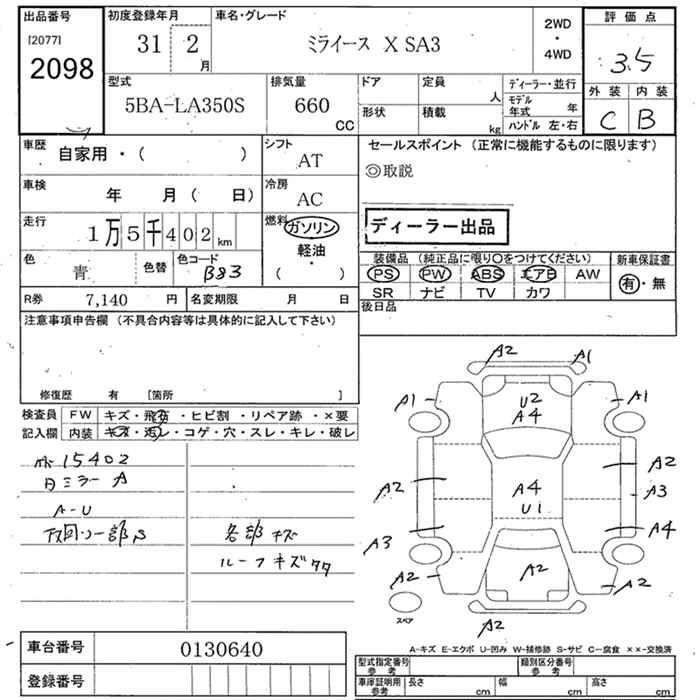 出品番号 初度登録年月 車名・グレード 2WD ・ 4WD 評価点
[2077] 2098 31 2 月 ミライース X SA3 3.5
外装 内装
C B
型式 排気量 ドア 定員 人 ディーラー・並行
5BA-LA350S 660 CC 形状 積載 kg モデル年式 年
ハンドル 左・右
車歴 自家用・( ) シフト AT セールスポイント (正常に機能するものに限ります)
◎取説
車検 年 月 ( 日) 冷房 AC
走行 1万5千402 km 燃料 ガソリン ディーラー出品
軽油
・
( )
色 青 色替 色コード B83 装備品 (純正品に限り○をつけてください) 新車保証書
PS PW ABS エアB AW 有・無
SR ナビ TV カワ
R券 7,140 円 名変期限 月 日 後日品
注意事項申告欄 (不具合内容等は具体的に記入して下さい)
修復歴 有 [箇所 ]
検査員 FW キズ・飛石・ヒビ割・リペア跡・×要
記入欄 内装 キズ・汚レ・コゲ・穴・スレ・キレ・破レ
15402
ミラー A
A-U
一部S 各部キズ
ルーフキズタタ
A2 A1
A1 U2 A4 A1
A2 A4 U1 A2
A3
A3 A4
A2 A2 A2
スペア A2
A-キズ E-エクボ U-凹み W-補修跡 S-サビ C-腐食 ××-交換済
車台番号 0130640
登録番号
型式指定番号 参考 類別区分番号 参考
車庫証明用 参考 長さ cm 幅 cm 高さ cm